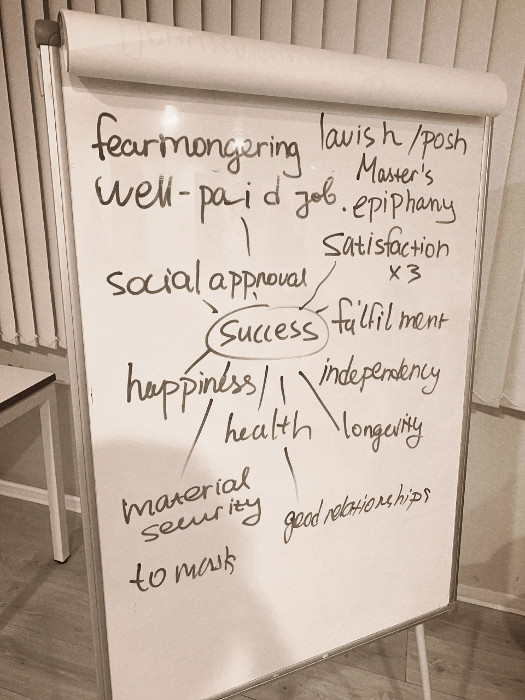 fearmongering
lavish / posh
Master's
well-paid job
. epiphany
satisfaction
x3
social approval
success
fulfilment
happiness
independency
health
longevity
material
security
good relationships
to mask